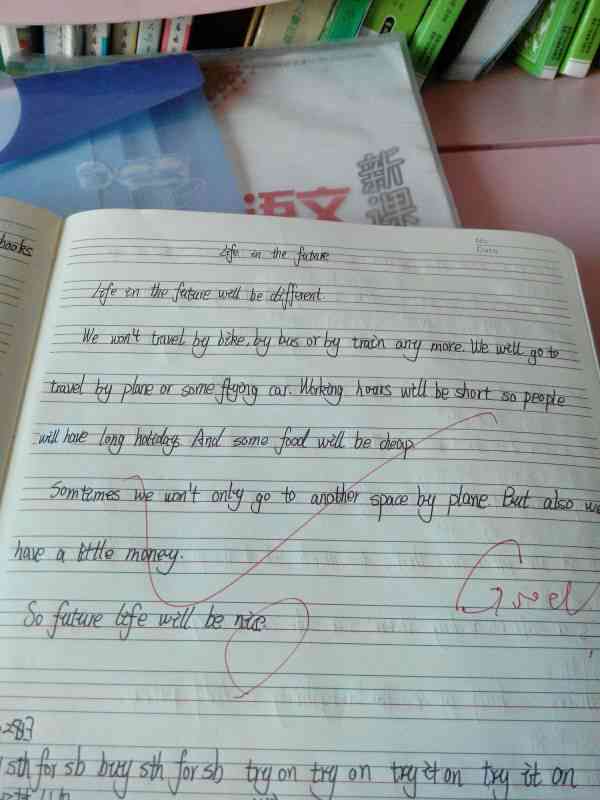 语文
新
课
books
No.
Date
Life in the future
Life in the future will be different.
We won't travel by bike, by bus or by train any more. We will go to
travel by plane or some flying car. Working hours will be short so people
will have long holidays. And some food will be cheap
Somtimes we won't only go to another space by plane But also we
have a little money.
So future life will be nice.
Good
283
sth for sb buy sth for sb try on try on try it on try it on